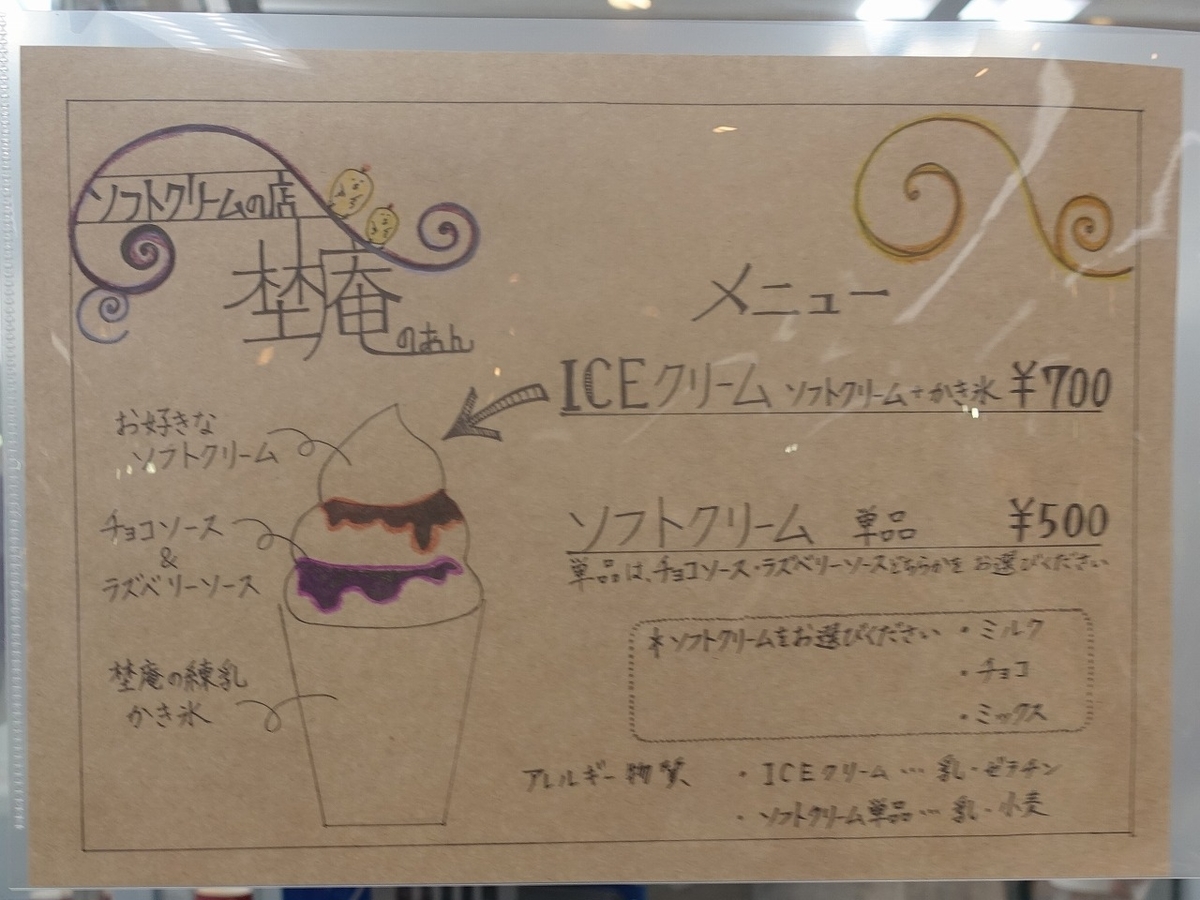 ソフトクリームの店
埜庵
のあん
メニュー
ICEクリーム ソフトクリーム+かき氷 ¥700
お好きな
ソフトクリーム
チョコソース
&
ラズベリーソース
埜庵の練乳
かき氷
ソフトクリーム 単品 ¥500
単品は、チョコソース・ラズベリーソースどちらかを お選びください
*ソフトクリームをお選びください ・ミルク
・チョコ
・ミックス
アレルギー物質 ・ICEクリーム… 乳・ゼラチン
・ソフトクリーム単品… 乳・小麦